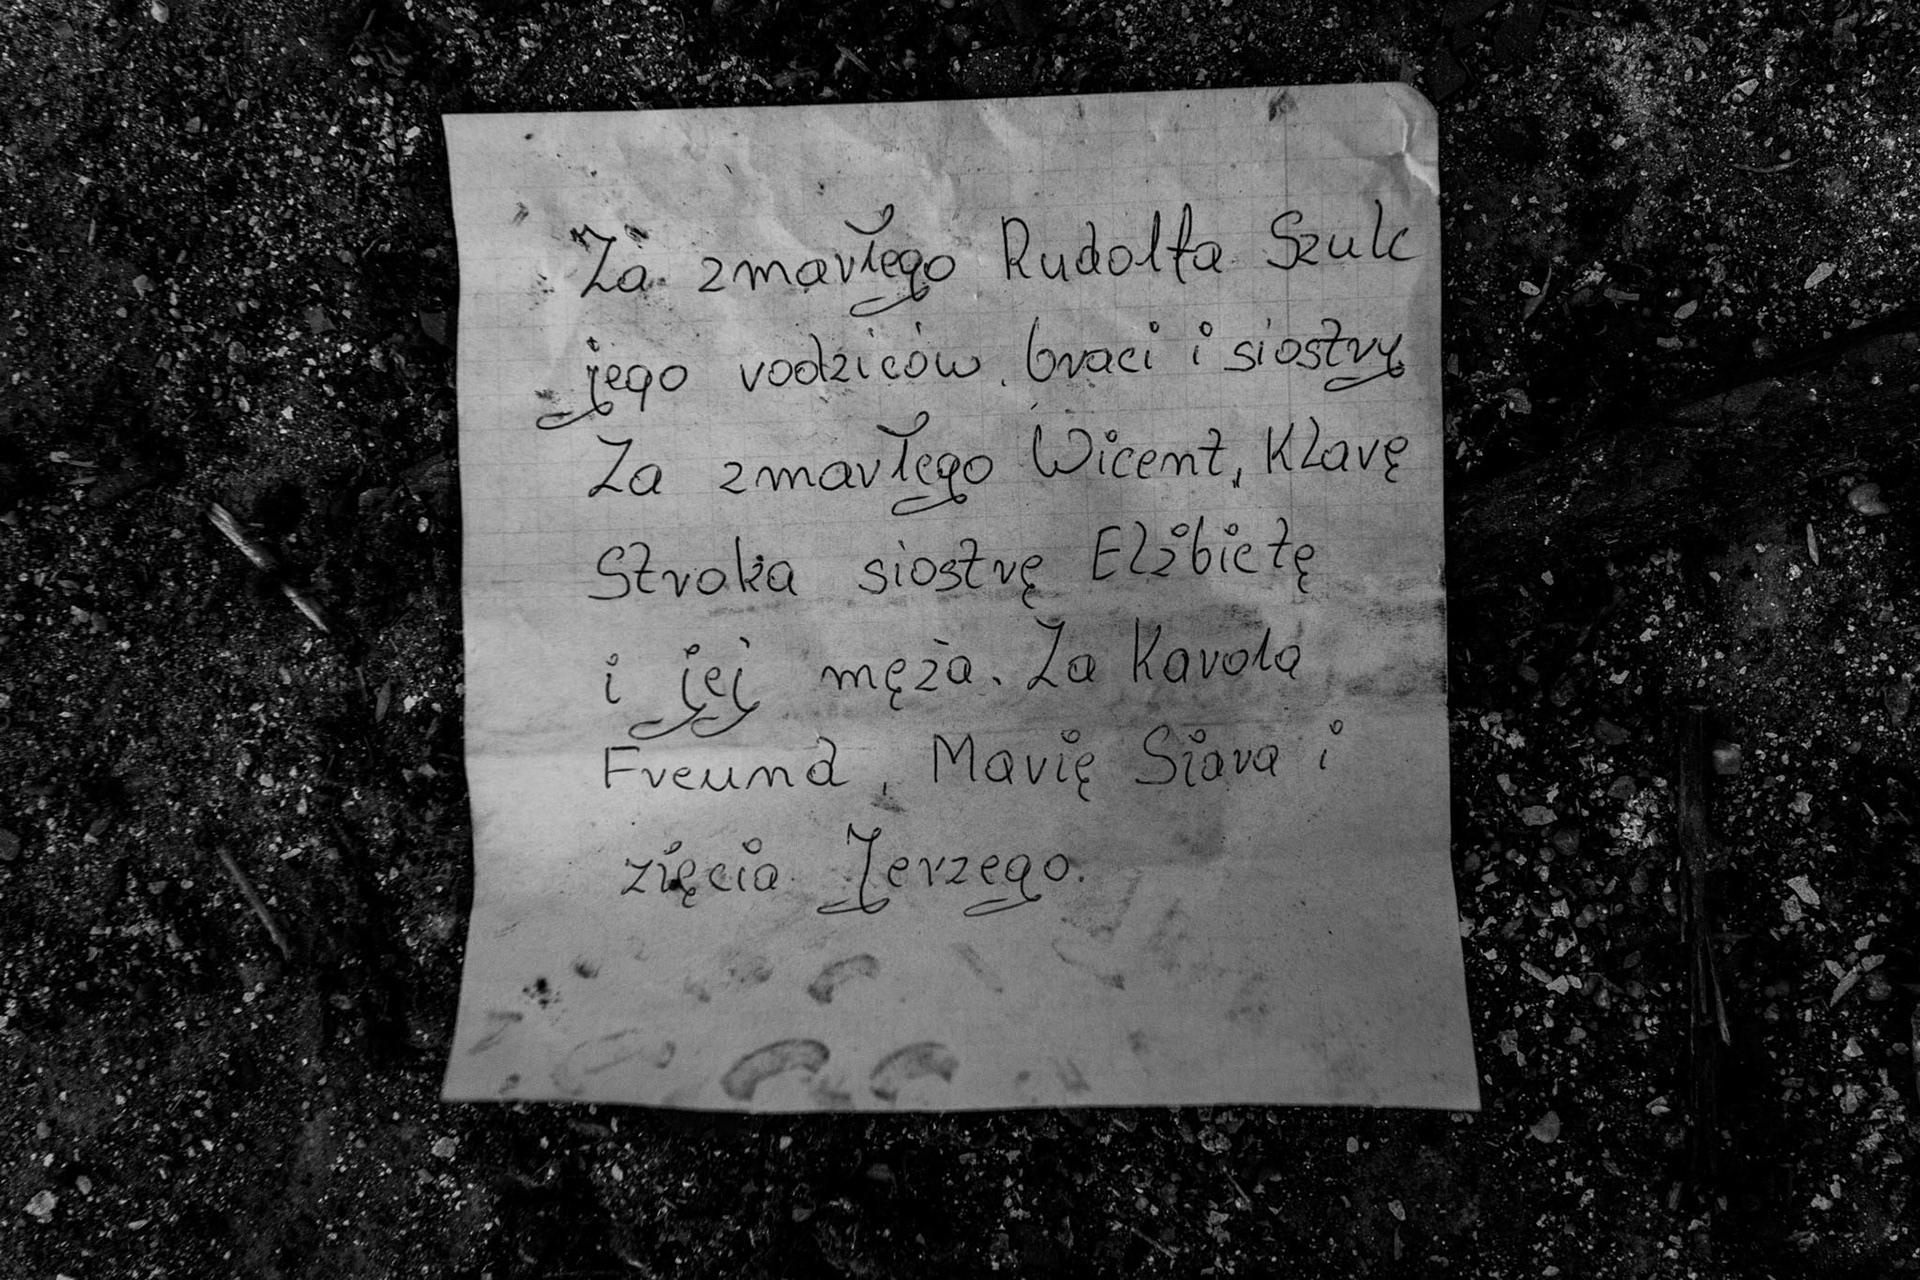 Za zmarłego Rudolfa Szulc
jego rodziców, braci i siostry
Za zmarłego Wicent, Klarę
Stroka siostrę Elżbietę
i jej męża. Za Karola
Freund, Marię Siara i
zięcia Jerzego.